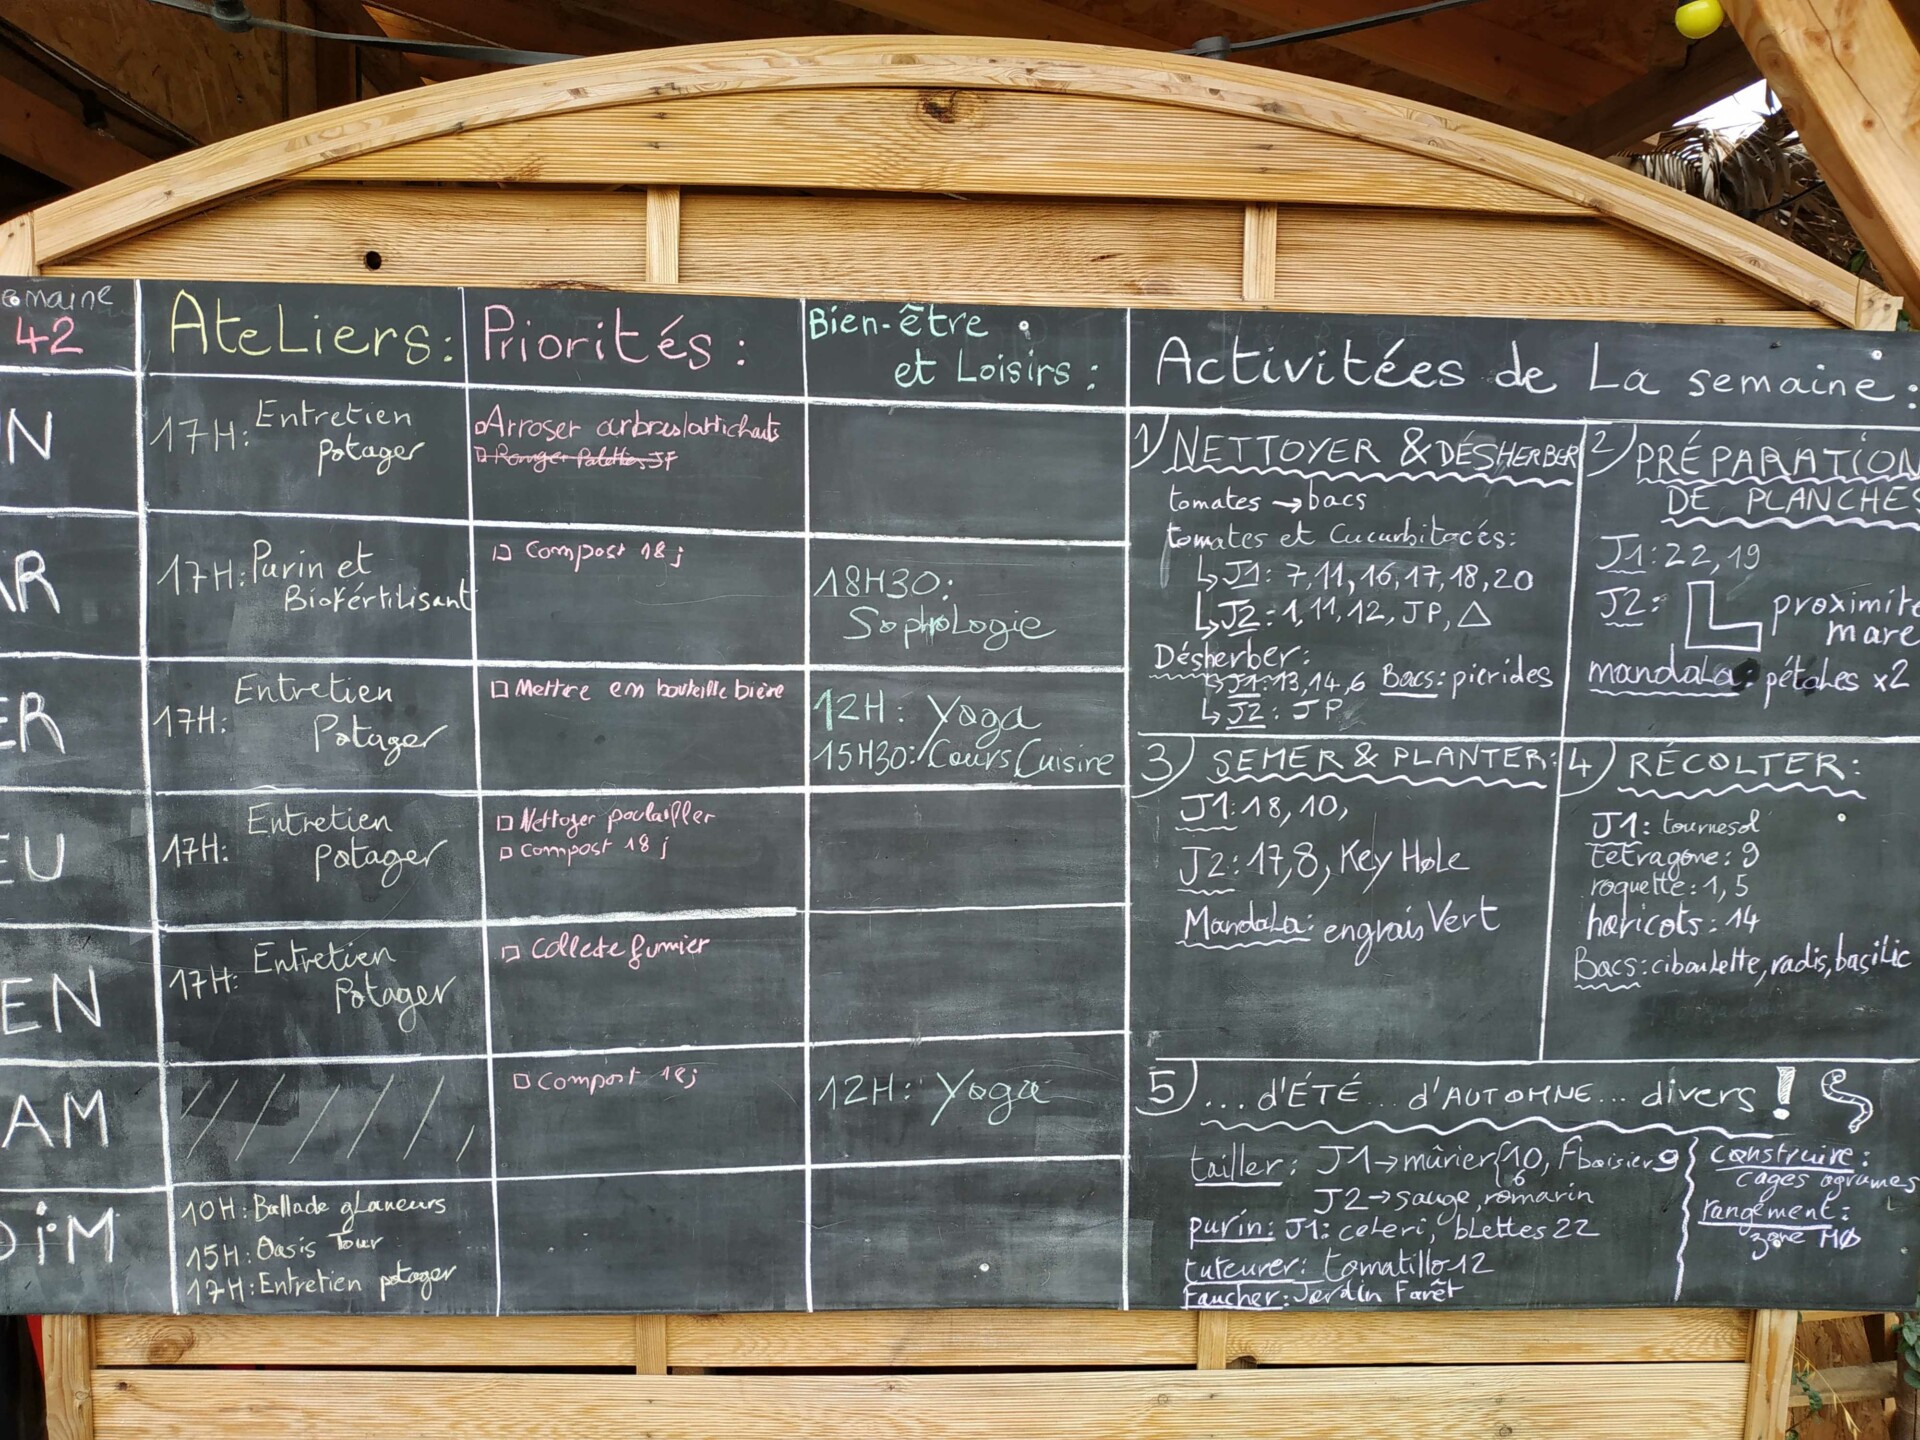 emaine
42
Ateliers:
Priorités:
Bien-être
et Loisirs:
Activitées de La semaine:
N
17H: Entretien
potager
Arroser arbres/artichauts
Ranger Palettes JF
AR
17H: Purin et
Biofertilisant
Compost 18j
18H30:
Sophrologie
ER
17H: Entretien
Potager
Mettre em bouteille bière
12H: Yoga
15H30: Cours Cuisine
EU
17H: Entretien
potager
Nettoyer poulailler
Compost 18j
EN
17H: Entretien
Potager
Collecte fumier
AM
Compost 18j
12H: Yoga
DiM
10H: Ballade glaneurs
15H: Oasis Tour
17H: Entretien potager
1) NETTOYER & DÉSHERBER
tomates → bacs
tomates et Cucurbitacés:
↳ J1: 7,11,16,17,18,20
↳ J2: 1,11,12, JP, △
Désherber:
↳ J1: 13,14,6 Bacs: pierides
↳ J2: JP
2) PRÉPARATION
DE PLANCHES
J1: 22,19
J2: proximité
mare
mandala: pétales x2
3) SEMER & PLANTER:
J1: 18,10,
J2: 17,8, Key Hole
Mandala: engrais Vert
4) RÉCOLTER:
J1: tournesol
tetragone: 9
roquette: 1,5
haricots: 14
Bacs: ciboulette, radis, basilic
5) ... d'ÉTÉ... d'AUTOMNE... divers !
tailler: J1→mûrier 10, Fboisier 9
6
J2→sauge, romarin
purin: J1: celeri, blettes 22
tuteurer: tomatillo 12
Faucher: Jardin Farêt
construire:
cages agrumes
rangement:
zone MØ